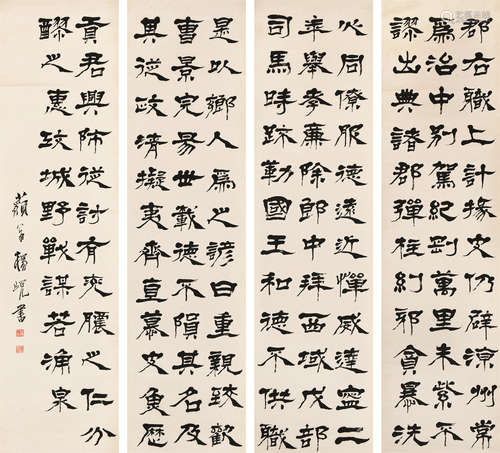 郡右職上計掾史仍辟涼州常
為治中別駕紀剛萬里朱紫不
謬出典諸郡彈枉糾邪貪暴洗
心同僚服德遠近憚威建寧二
年舉孝廉除郎中拜西域戊部
司馬時疏勒國王和德不供職
是以鄉人為之諺曰重親致歡
曹景完易世載德不隕其名及
其從政清擬夷齊直慕史魚歷
貢君興師征討有兗膿之仁分
醪之惠攻城野戰謀若涌泉
翁書